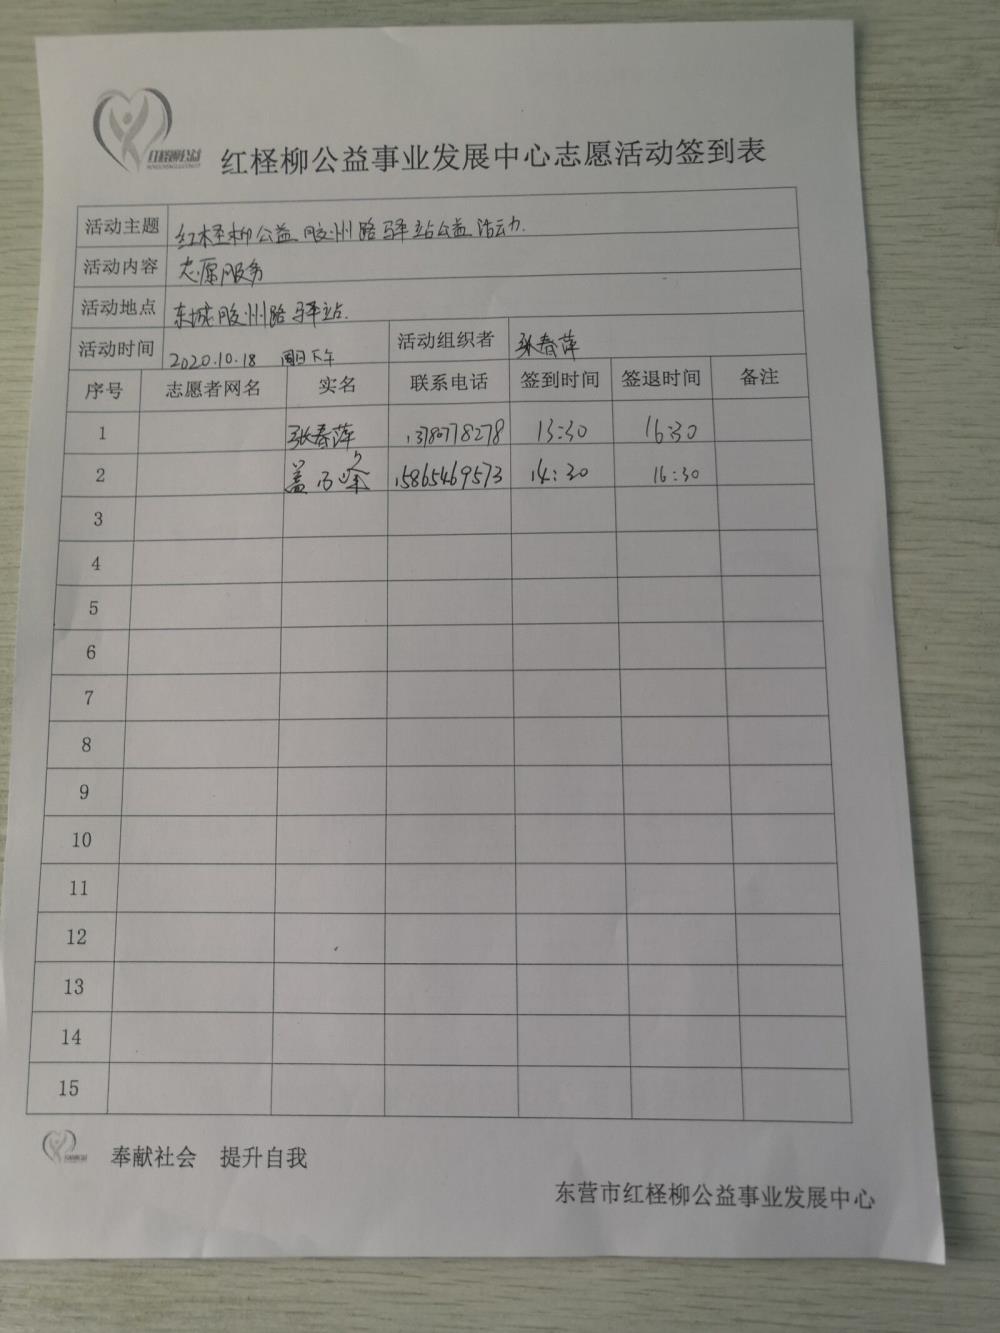 红柽柳公益
红柽柳公益事业发展中心志愿活动签到表
活动主题 红柽柳公益胶州路驿站公益活动.
活动内容 志愿服务
活动地点 东城胶州路驿站.
活动时间 2020.10.18 周日下午 活动组织者 张春萍
序号 志愿者网名 实名 联系电话 签到时间 签退时间 备注
1 张春萍 13780778278 13:30 16:30
2 盖 15865469573 14:30 16:30
3
4
5
6
7
8
9
10
11
12
13
14
15
奉献社会 提升自我
东营市红柽柳公益事业发展中心